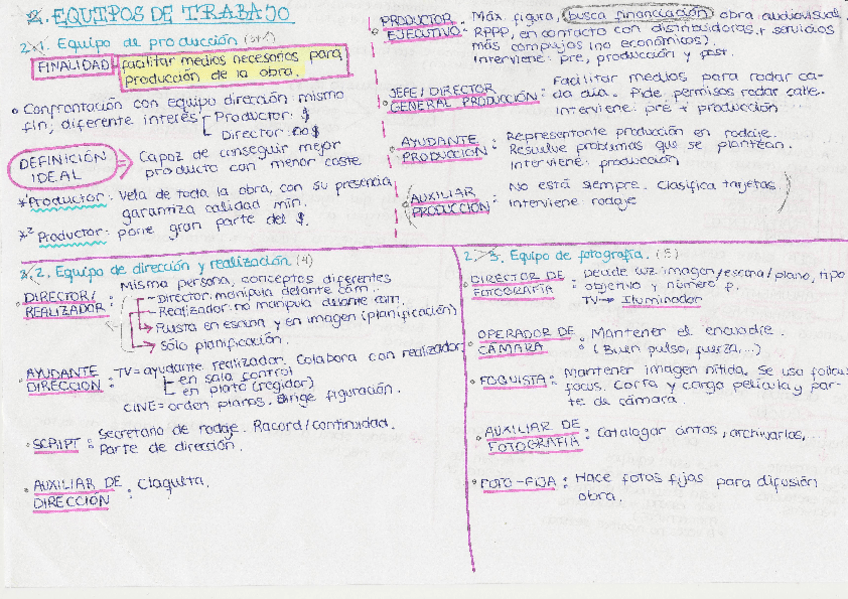 2. EQUIPOS DE TRABAJO
2.1. Equipo de producción
FINALIDAD facilitar medios necesarios para
producción de la obra.
Confrontación con equipo dirección: mismo
fin, diferente interés Productor: $
Director: no $
DEFINICIÓN
IDEAL
Capaz de conseguir mejor
producto con menor coste
*Productor: Vela de toda la obra, con su presencia
garantiza calidad mín.
*² Productor: pone gran parte del $.
PRODUCTOR
EJECUTIVO:
Máx. figura, busca financiación obra audiovisual.
RRPP, en contacto con distribuidoras, servicios
más complejos (no económicos).
Interviene: pre, producción y post.
JEFE/DIRECTOR
GENERAL PRODUCCIÓN:
Facilitar medios para rodar ca-
da día. Pide permisos rodar calle.
Interviene: pre + producción
AYUDANTE
PRODUCCIÓN:
Representante producción en rodaje.
Resuelve problemas que se plantean.
Interviene: producción
(AUXILIAR
PRODUCCIÓN:
No está siempre. Clasifica tarjetas.
Interviene rodaje )
2.2. Equipo de dirección y realización (4)
DIRECTOR/
REALIZADOR:
Misma persona, conceptos diferentes
Director: manipula delante cám.
Realizador: no manipula delante cám.
Puesta en escena y en imagen (planificación)
Sólo planificación.
AYUDANTE
DIRECCIÓN:
TV= ayudante realizador. Colabora con realizador
en sala control
en plató (regidor)
CINE= orden planos. Dirige figuración.
SCRIPT:
Secretario de rodaje. Racord/Continuidad.
Parte de dirección.
AUXILIAR DE
DIRECCIÓN
: Claqueta.
2.3. Equipo de fotografía. (5)
DIRECTOR DE
FOTOGRAFÍA:
Decide luz imagen/escena/plano, tipo
objetivo y número f.
TV→ Iluminador
OPERADOR DE
CÁMARA
: Mantener el encuadre.
(Buen pulso, fuerza,...)
FOQUISTA:
Mantener imagen nítida. Se usa follow
focus. Corra y carga película y par-
te de cámara.
AUXILIAR DE
FOTOGRAFÍA
: Catalogar cintas, archivarlas,...
FOTO-FIJA: Hace fotos fijas para difusión
obra.